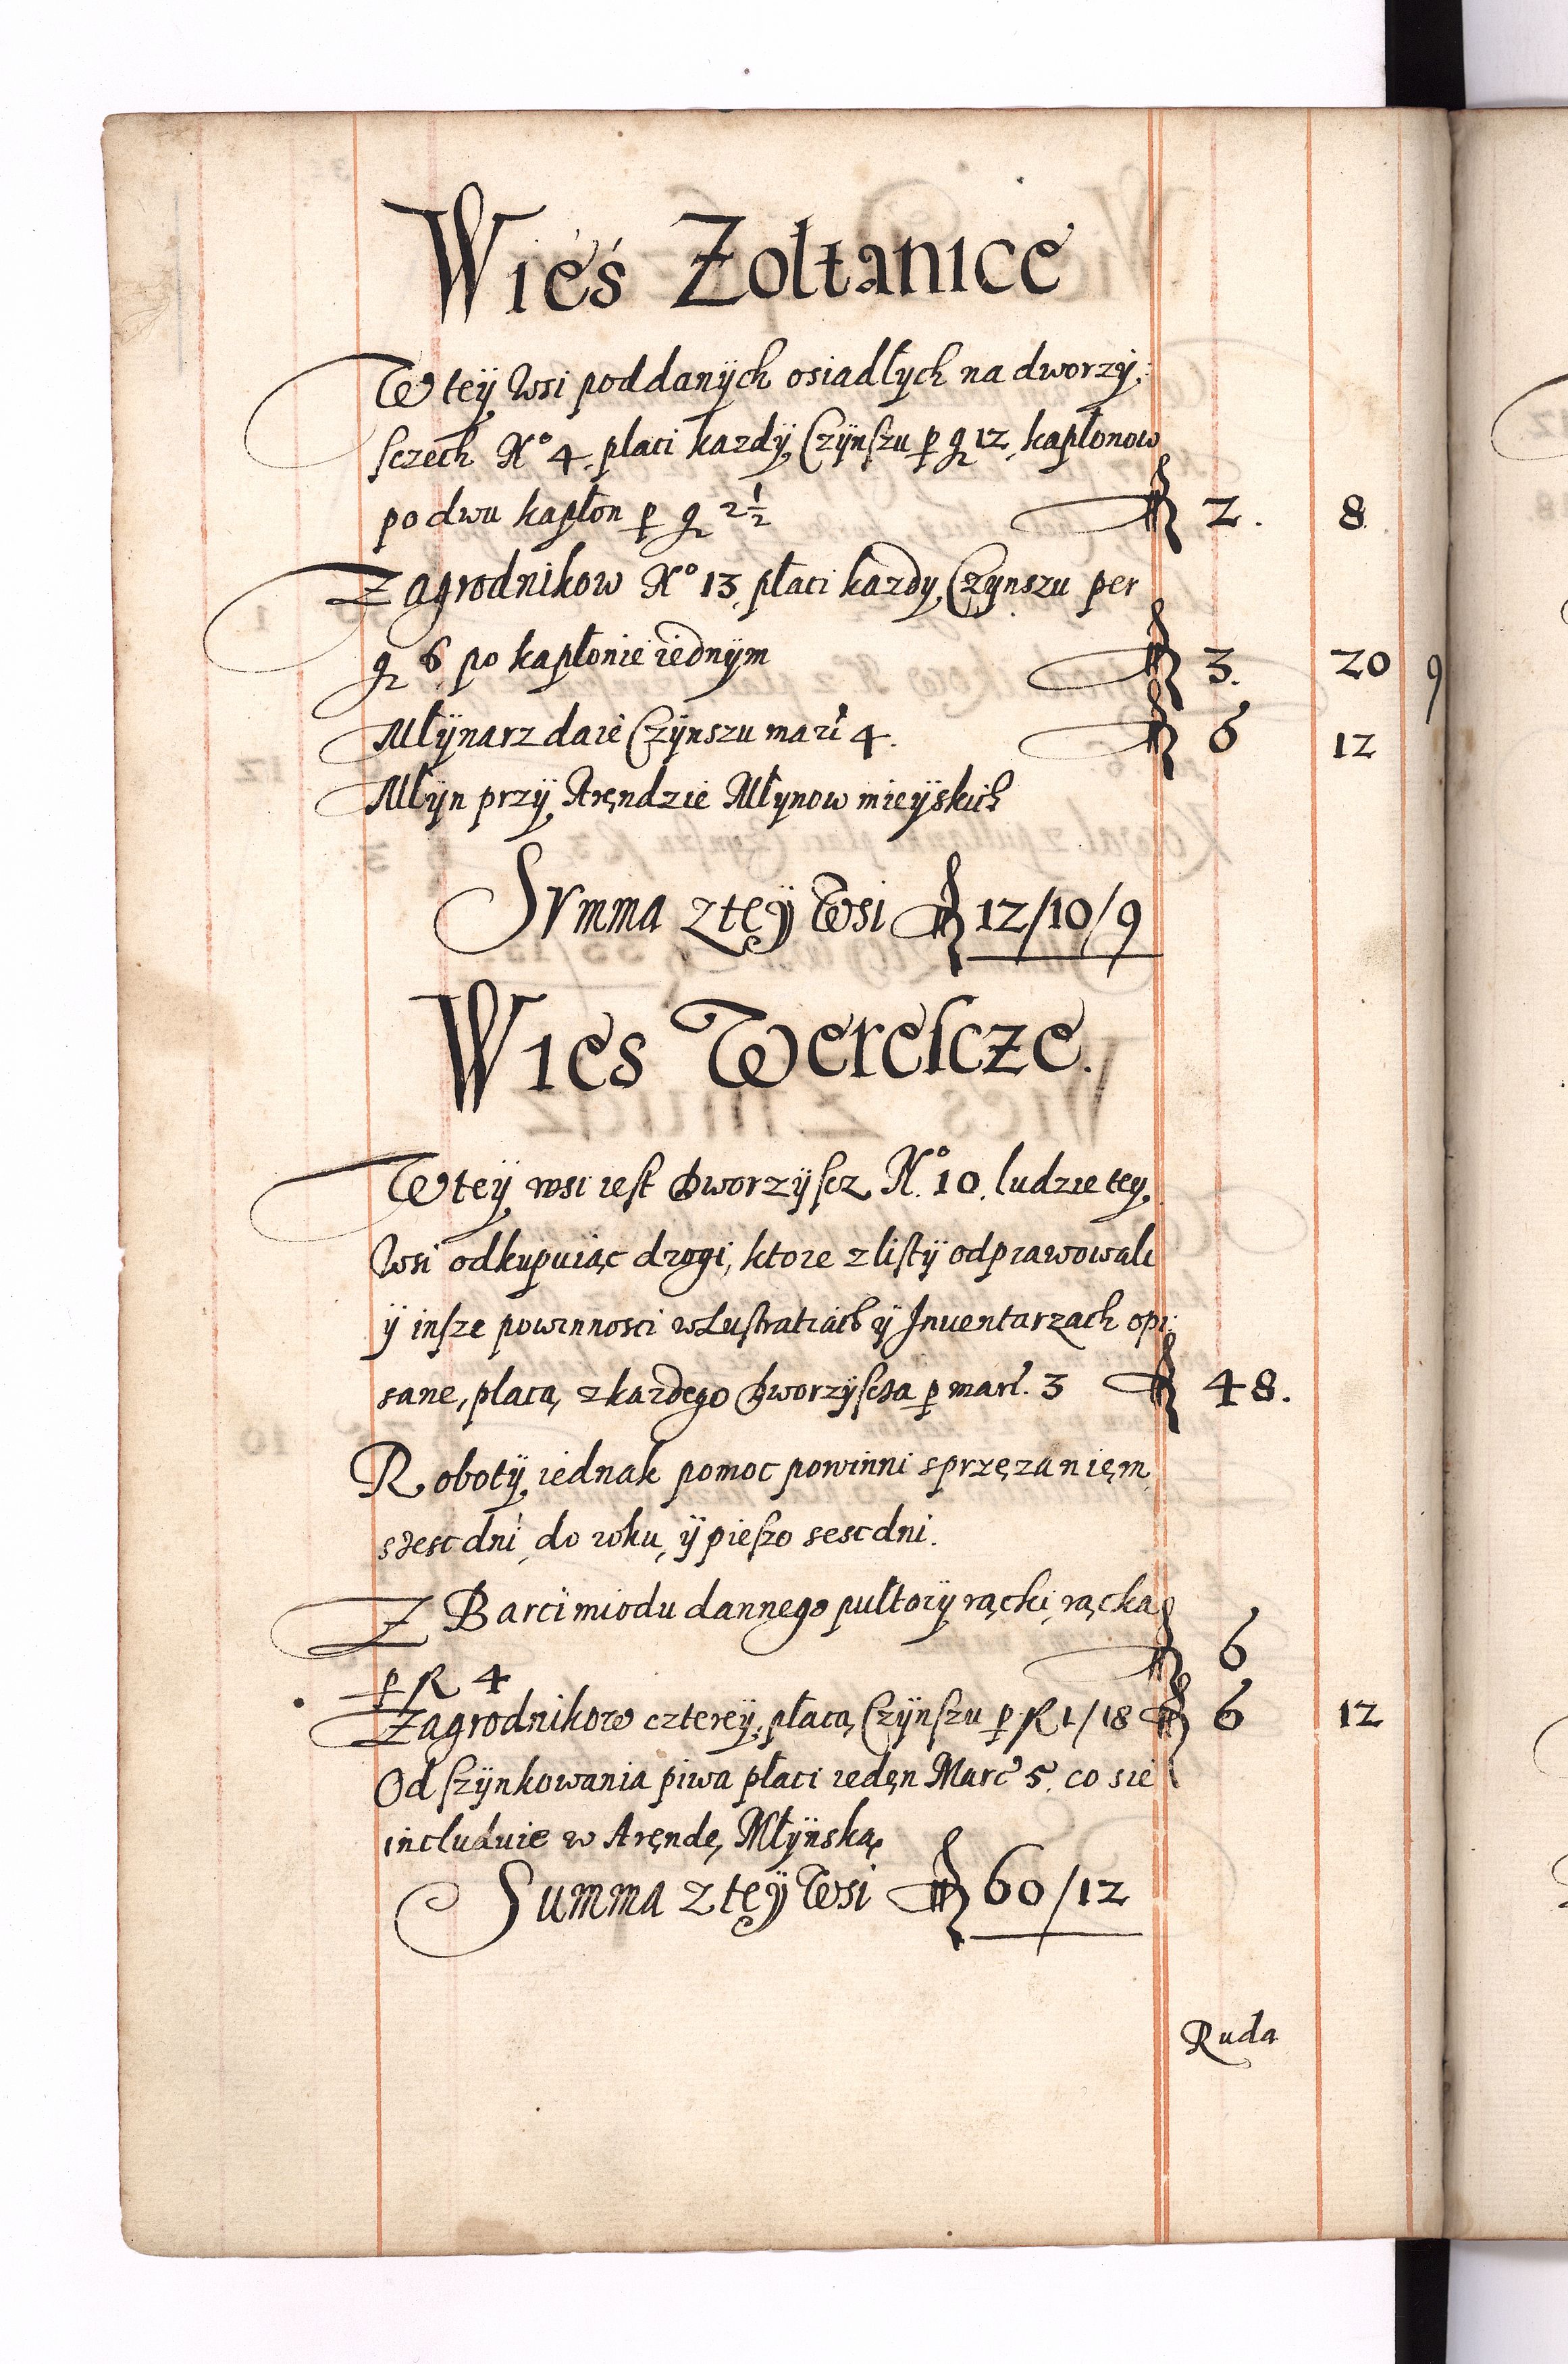 Wieś Zołtanice
W teÿ Wsi poddanÿch osiadłych na dworzÿ:
sczech N° 4. płaci kazdÿ Czÿnszu p gr 12, kapłonow
po dwu kapłon p gr 2½ fl 2. 8
Zagrodnikow N° 13, płaci kazdy Czynszu per
gr 6 po kapłonie iednÿm fl 3. 20 9
Młÿnarz daie Czÿnszu marc 4. fl 6 12
Młÿn przÿ Aręndzie Młynow mieÿskich
Summa z teÿ Wsi fl 12/10/9
Wies Terescze.
W teÿ wsi iest Dworzÿscz N° 10. ludzie tey
Wsi odkupuiąc drogi, ktore z listÿ odprawowali
ÿ insze powinnosci w Lustratiach ÿ Inuentarzach opi:
sane, płacą z kazdego Dworzÿscza p marc. 3 fl 48.
Robotÿ iednak pomoc powinni sprzęzanięm
szesc dni do roku, ÿ pieszo sesc dni.
Z Barci miodu dannego pułtorÿ rączki, rączka
p fl 4 fl 6
Zagrodnikow czterej, płacą Czÿnszu p fl 1/18 fl 6 12
Od szÿnkowania piwa płaci iedęn Marc 5. co sie
includuie w Arendę Młÿnską.
Summa z teÿ Wsi fl 60/12
Ruda